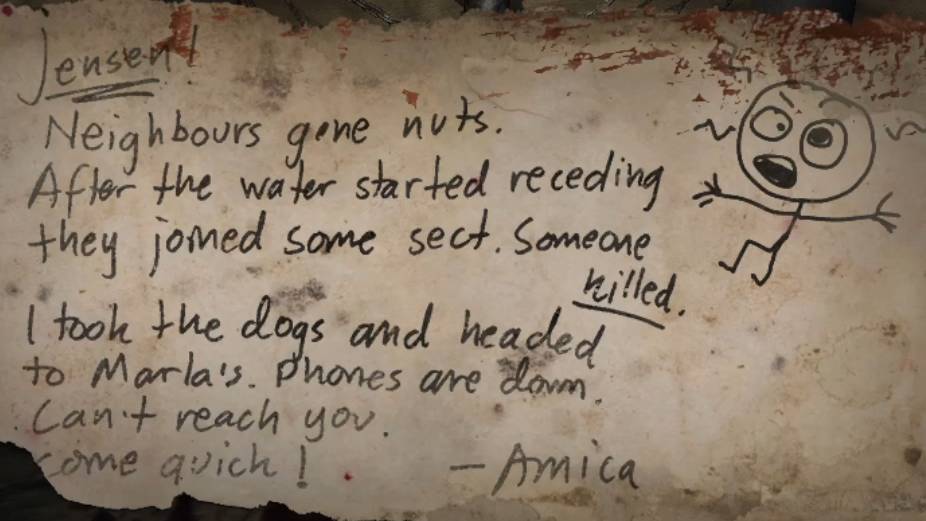 Jensen!
Neighbours gone nuts.
After the water started receding
they joined some sect. Someone
killed.
I took the dogs and headed
to Marla's. Phones are down.
Can't reach you.
come quick!
— Amica